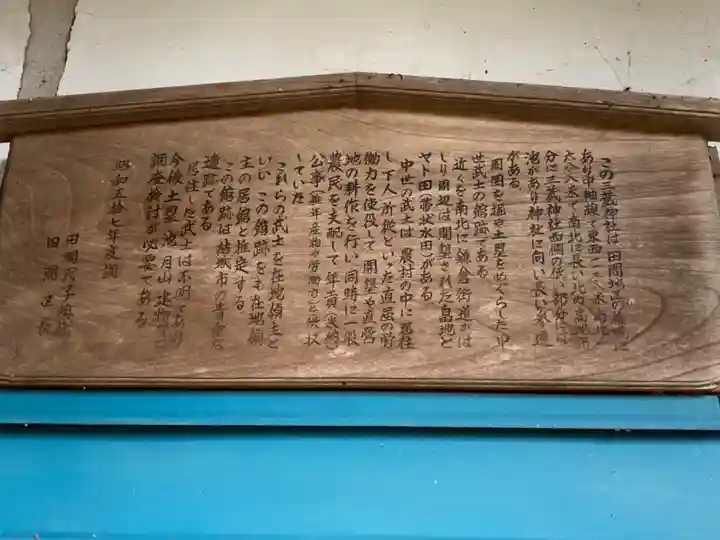 この三蔵神社は田間地区の
あり中軸線で東西一二〇米南北
六〇米で南北に長い北の高地
分に三蔵神社西側の低い部分には
池があり神社に向い長い参道
がある
周囲を堀や土塁をめぐらした中
世武士の館跡である
近くを南北に鎌倉街道がは
しり周辺は開墾された畠地と
ヤト田(帯状水田)がある
中世の武士は、農村の中に居住
し下人、所従といった直属の労
働力を使役して開墾や直営
地の耕作を行い、同時に一般
農民を支配して年貢(米納)
公事(雑年産物や労働力)を徴収
していた
これらの武士を在地領主と
いい、この館跡を在地領
主の居館と推定する
この館跡は結城市の貴重な
遺跡である
居住した武士は不明であり
今後土塁、池、月山、建物
調査検討が必要である
昭和五拾七年度調
田間
田間区長